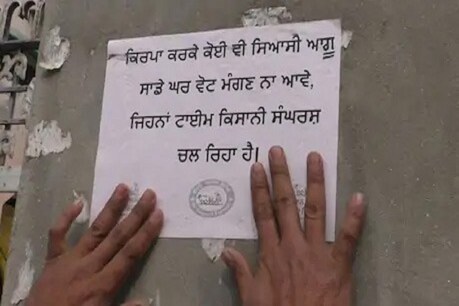 ਕਿਰਪਾ ਕਰਕੇ ਕੋਈ ਵੀ ਸਿਆਸੀ ਆਗੂ
ਸਾਡੇ ਘਰ ਵੋਟ ਮੰਗਣ ਨਾ ਆਵੇ,
ਜਿਹਨਾਂ ਟਾਈਮ ਕਿਸਾਨੀ ਸੰਘਰਸ਼
ਚਲ ਰਿਹਾ ਹੈ।